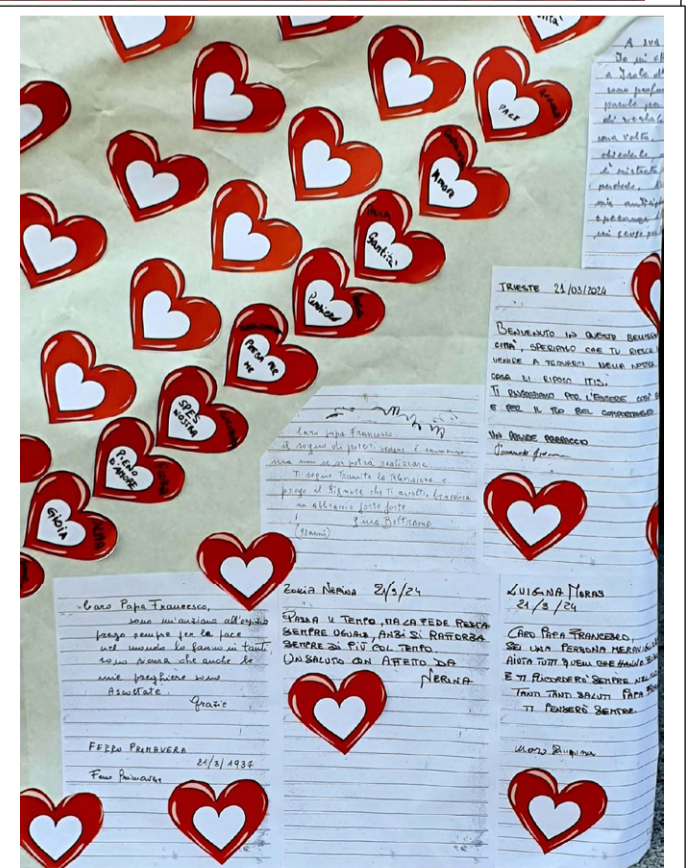 PACE
Amore
Santità
PREGA PER
ME
SPES
NOSTRA
PIENO
D'AMORE
GIOIA
A sua
Io mi ch
a Isola d'
sono profon
parole per
una volta
TRIESTE 21/03/2024
BENVENUTO IN QUESTA BELLISS
CITTÀ, SPERIAMO CHE TU RIESCA
VENIRE A TROVARCI NELLA NOSTRA
CASA DI RIPOSO ITIS.
TI RINGRAZIAMO PER L'ESSERE COSÌ
E PER IL TUO BEL COMPORTAMENTO
UN GRANDE ABBRACCIO
Caro papa Francesco
il sogno di poterti vedere è
ma non se potrà realizzare
Ti seguo tramite la televisione e
prego il Signore che ti ascolti
un abbraccio forte forte
Beltrame
Caro Papa Francesco,
sono un'anziana all'ospizio
prego sempre per la pace
nel mondo lo fanno in tanti
sono sicura che anche le
mie preghiere sono
Ascoltate.
Grazie
FERRO PRIMAVERA
21/3/1937
Ferro Primavera
NERINA 21/3/24
PASSA IL TEMPO, MA LA FEDE RESTA
SEMPRE UGUALE, ANZI SI RAFFORZA
SEMPRE DI PIÙ COL TEMPO.
UN SALUTO CON AFFETTO DA
NERINA
LUIGINA MORAS
21/3/24
CARO PAPA FRANCESCO,
SEI UNA PERSONA MERAVIGLI
AIUTA TUTTI QUELLI CHE HANNO
E TI RICORDERÒ SEMPRE NEL
TANTI TANTI SALUTI PAPA
TI PENSERÒ SEMPRE.